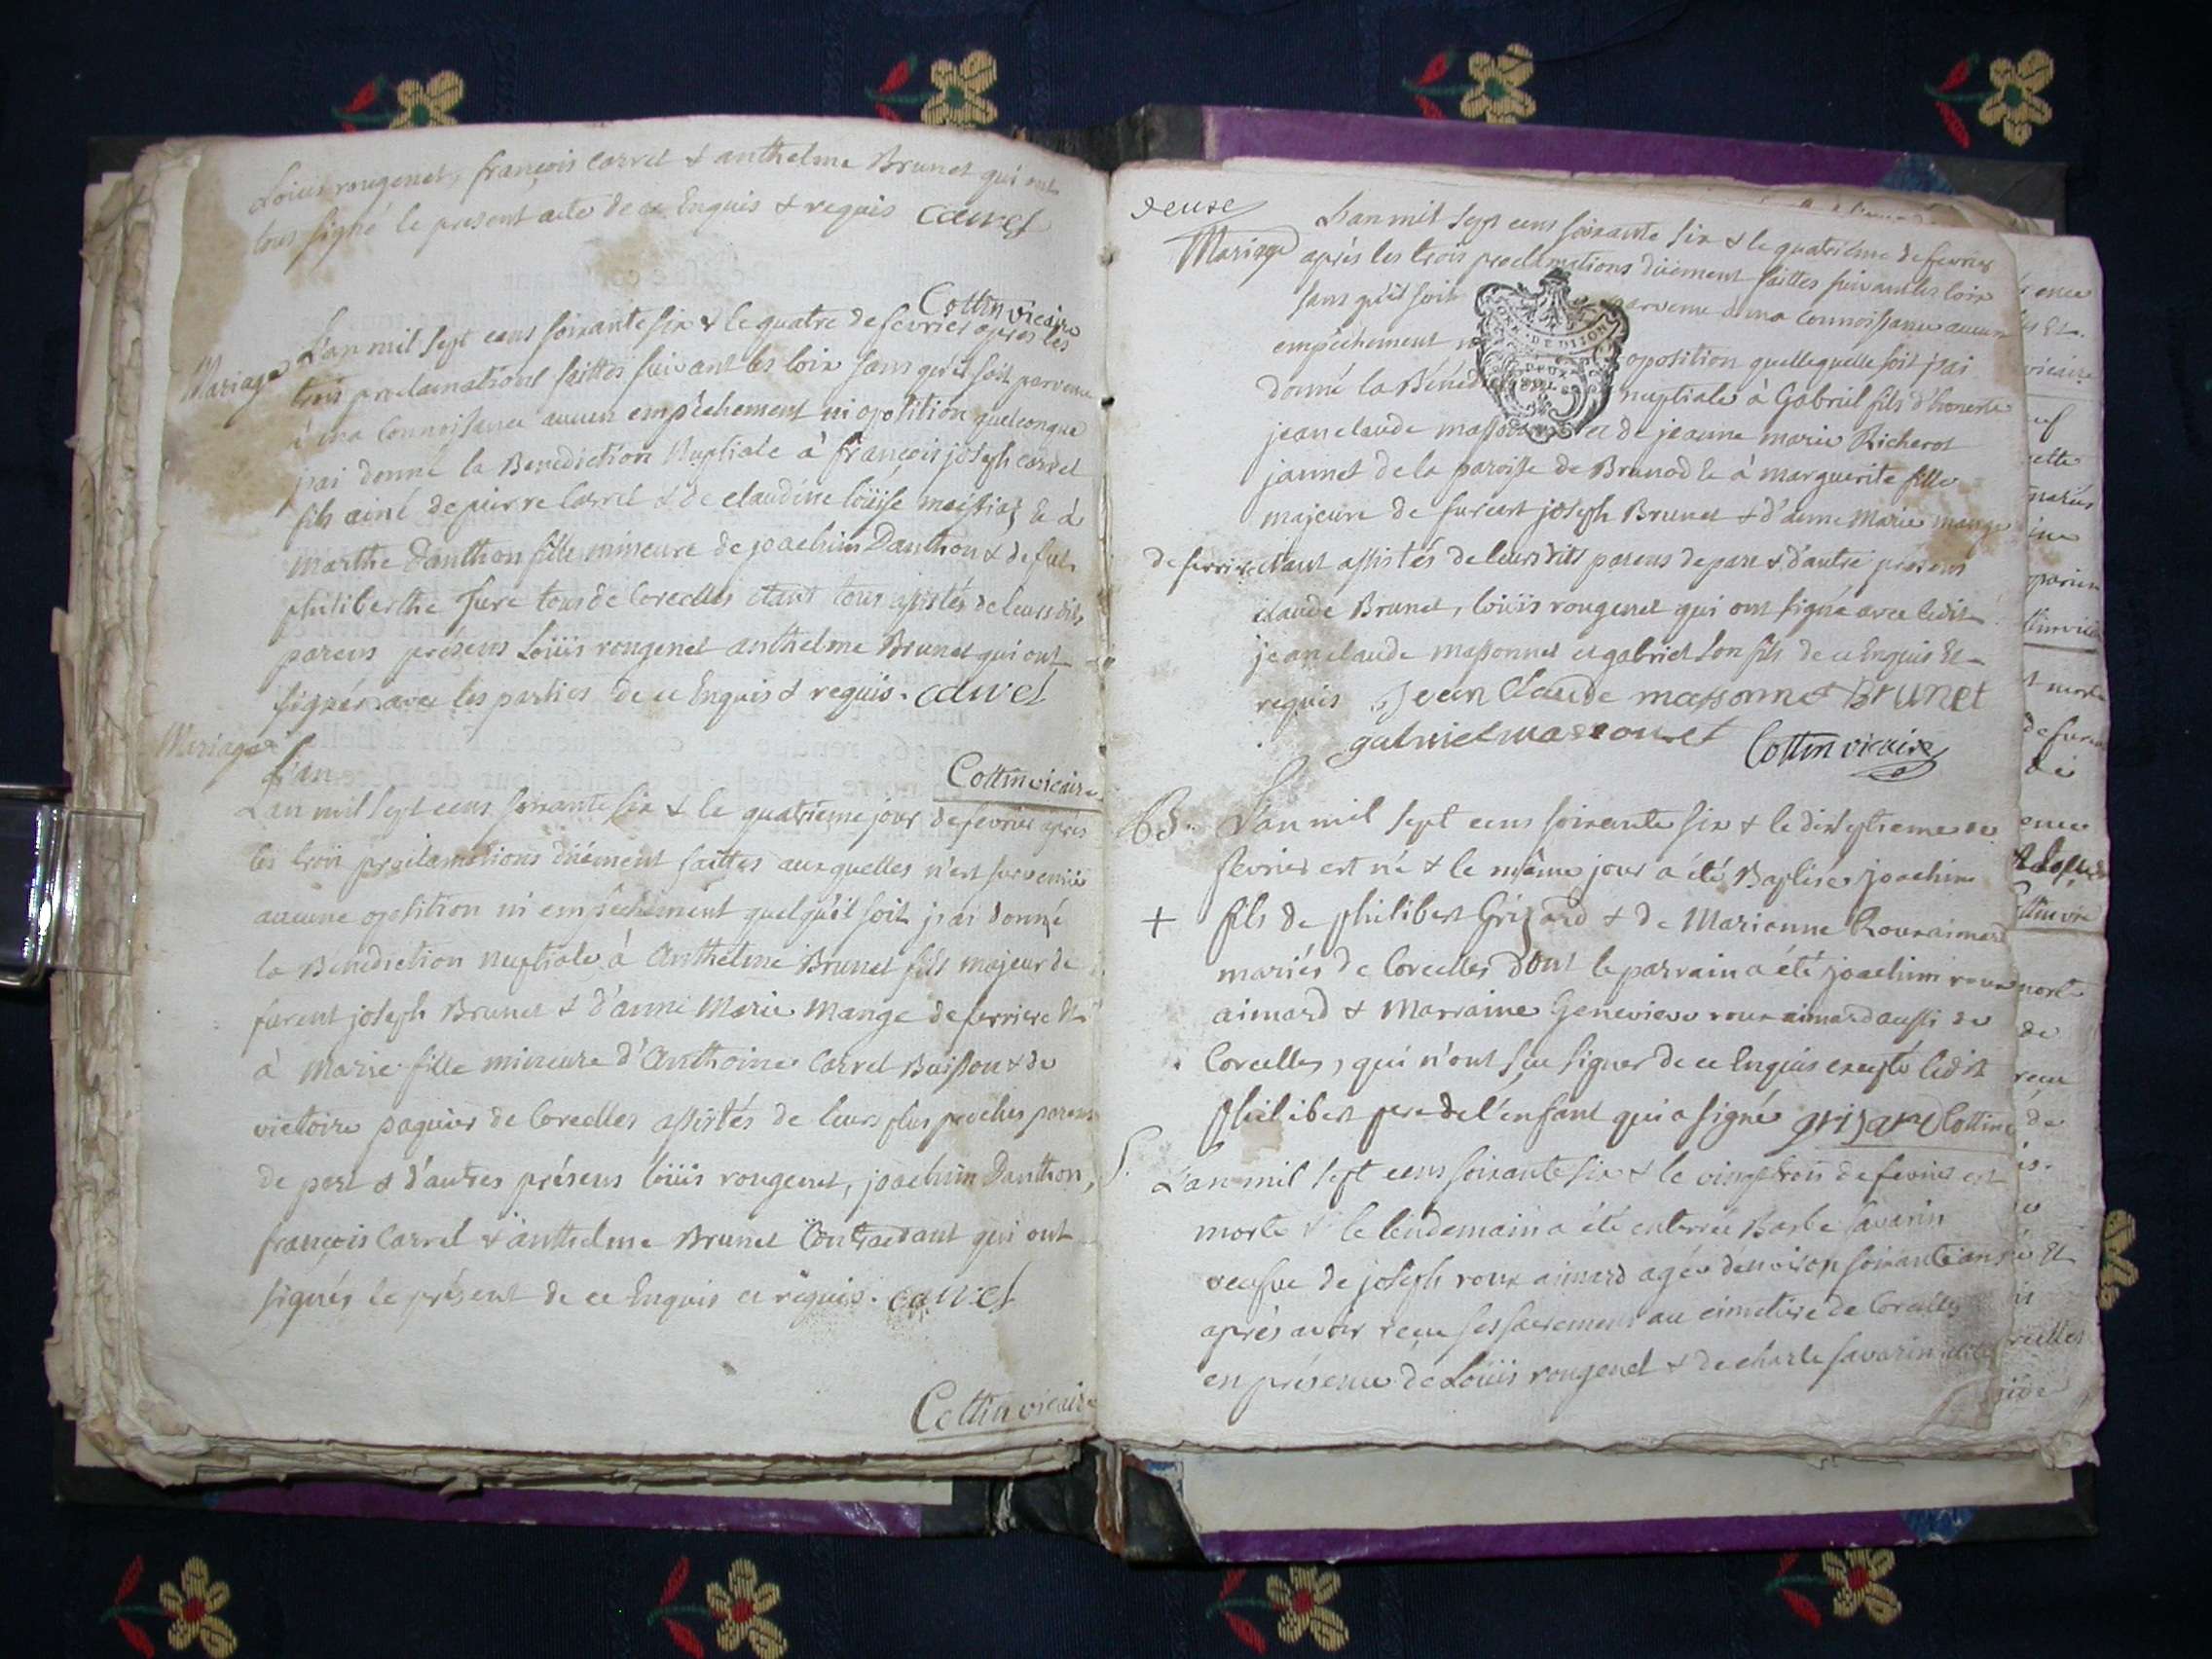 Loüis rougenet, françois Carrel & anthelme Brunet qui ont
tous signé le present acte de ce Enquis & requis Carrel
Cottin vicaire
Mariage
L'an mil sept cens soixante six & le quatre de fevrier après les
trois proclamations faittes suivant les loix sans qu'il soit parvenu
à ma Connoissance aucun empêchement ni oposition quelconque
j'ai donné la Benediction Nuptiale à françois joseph carrel
fils ainé de pierre Carrel & de claudine loüise & à
Marthe Danthon fille mineure de joachim Danthon & de fut
philiberthe Jure tous de Corcelles étant tous assistés de leurs dits
parens présens Loüis rougenet anthelme Brunet qui ont
signés avec les parties de ce Enquis & requis. Carrel
Cottin vicaire
Mariage
L'an
L'an mil sept cens soixante six & le quatrieme jour de fevrier après
les trois proclamations düement faittes auxquelles n'est survenüe
aucune oposition ni empêchement quelqu'il soit j'ai donné
la Benediction nuptiale à Anthelme Brunet fils majeur de
furent joseph Brunet & d'anne Marie Mange de ferriere Et
à Marie fille mineure d'Anthoine Carrel Buisson & de
victoire paquier de Corcelles assistés de leurs plus proches parens
de part & d'autres présens loüis rougenet, joachim Danthon,
françois Carrel & anthelme Brunet Contractant qui ont
signés le présent de ce Enquis et requis. Carrel
Cottin vicaire
deuxe
Mariage
L'an mil sept cens soixante six & le quatrieme de fevrier
après les trois proclamations düement faittes suivant les loix
sans qu'il soit parvenu à ma Connoissance aucun
empêchement oposition quelle quelle soit j'ai
donné la Bénédi nuptiale à Gabriel fils d'honeste
jean claude massonnet et de jeanne marie Richerot
jannet de la paroisse de Brenod Et à marguerite fille
majeure de furent joseph Brunet & d'anne Marie mange
de ferriere étant assistés de leursdits parens de part & d'autre présens
claude Brunet, loüis rougenet qui ont signé avec ledit
jean claude massonnet et gabriel son fils de ce Enquis Et
requis Jean Claude massonnet Brunet
gabriel massonet Cottin vicaire
B. L'an mil sept cens soixante six & le dixseptieme de
fevrier est né & le même jour a été Baptisé joachim
+ fils de philibert Grizard & de Marianne Rouxaimard
mariés de Corcelles dont le parrain a été joachim roux
aimard & Marraine Genevieve roux aimard aussi de
Corcelles, qui n'ont sçu signer de ce Enquis excepté ledit
philibert pere de l'enfant qui a signé grizard Cottin
S. L'an mil sept cens soixante six & le vingt trois de fevrier est
morte & le lendemain a été enterrée Barbe Savarin
veufve de joseph roux aimard agée d'environ soixante ans
après avoir reçu ses sacremens au cimetiere de Corcelles
en présence de Loüis rougenet & de charle savarin